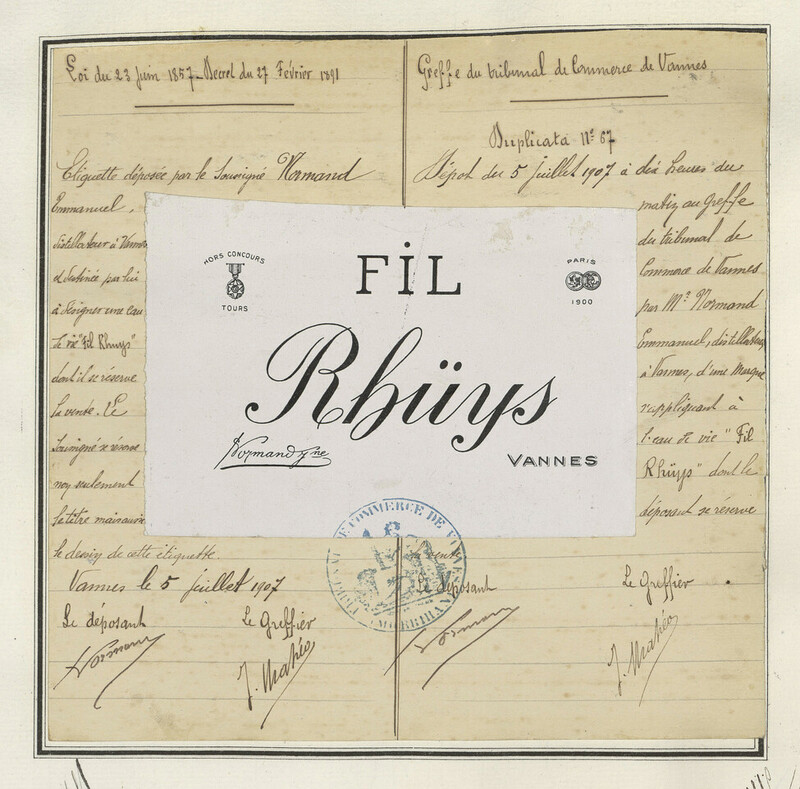 Loi du 23 Juin 1857 - Décret du 27 Février 1891
Etiquette déposée par le Soussigné Normand
Emmanuel,
distillateur à Vannes
et destinée par lui
à désigner une eau
de vie "Fil Rhuys"
dont il se réserve
la vente. Le
soussigné se réserve
non seulement
le titre mais aussi
le dessin de cette étiquette.
Vannes le 5 Juillet 1907
Le déposant
Le Greffier
Normand
J. Mahéo
Greffe du tribunal de Commerce de Vannes
Duplicata N° 67
Dépôt du 5 Juillet 1907 à dix heures du
matin au Greffe
du tribunal de
Commerce de Vannes
par Mr Normand
Emmanuel, distillateur
à Vannes, d'une Marque
s'appliquant à
l'eau de vie "Fil
Rhüys" dont le
déposant se réserve
la vente
Le déposant
Le Greffier
Normand
J. Mahéo
HORS CONCOURS
TOURS
FİL
PARIS
1900
Rhüys
Normand Jne
VANNES
TRIBUNAL DE COMMERCE DE VANNES
(MORBIHAN)